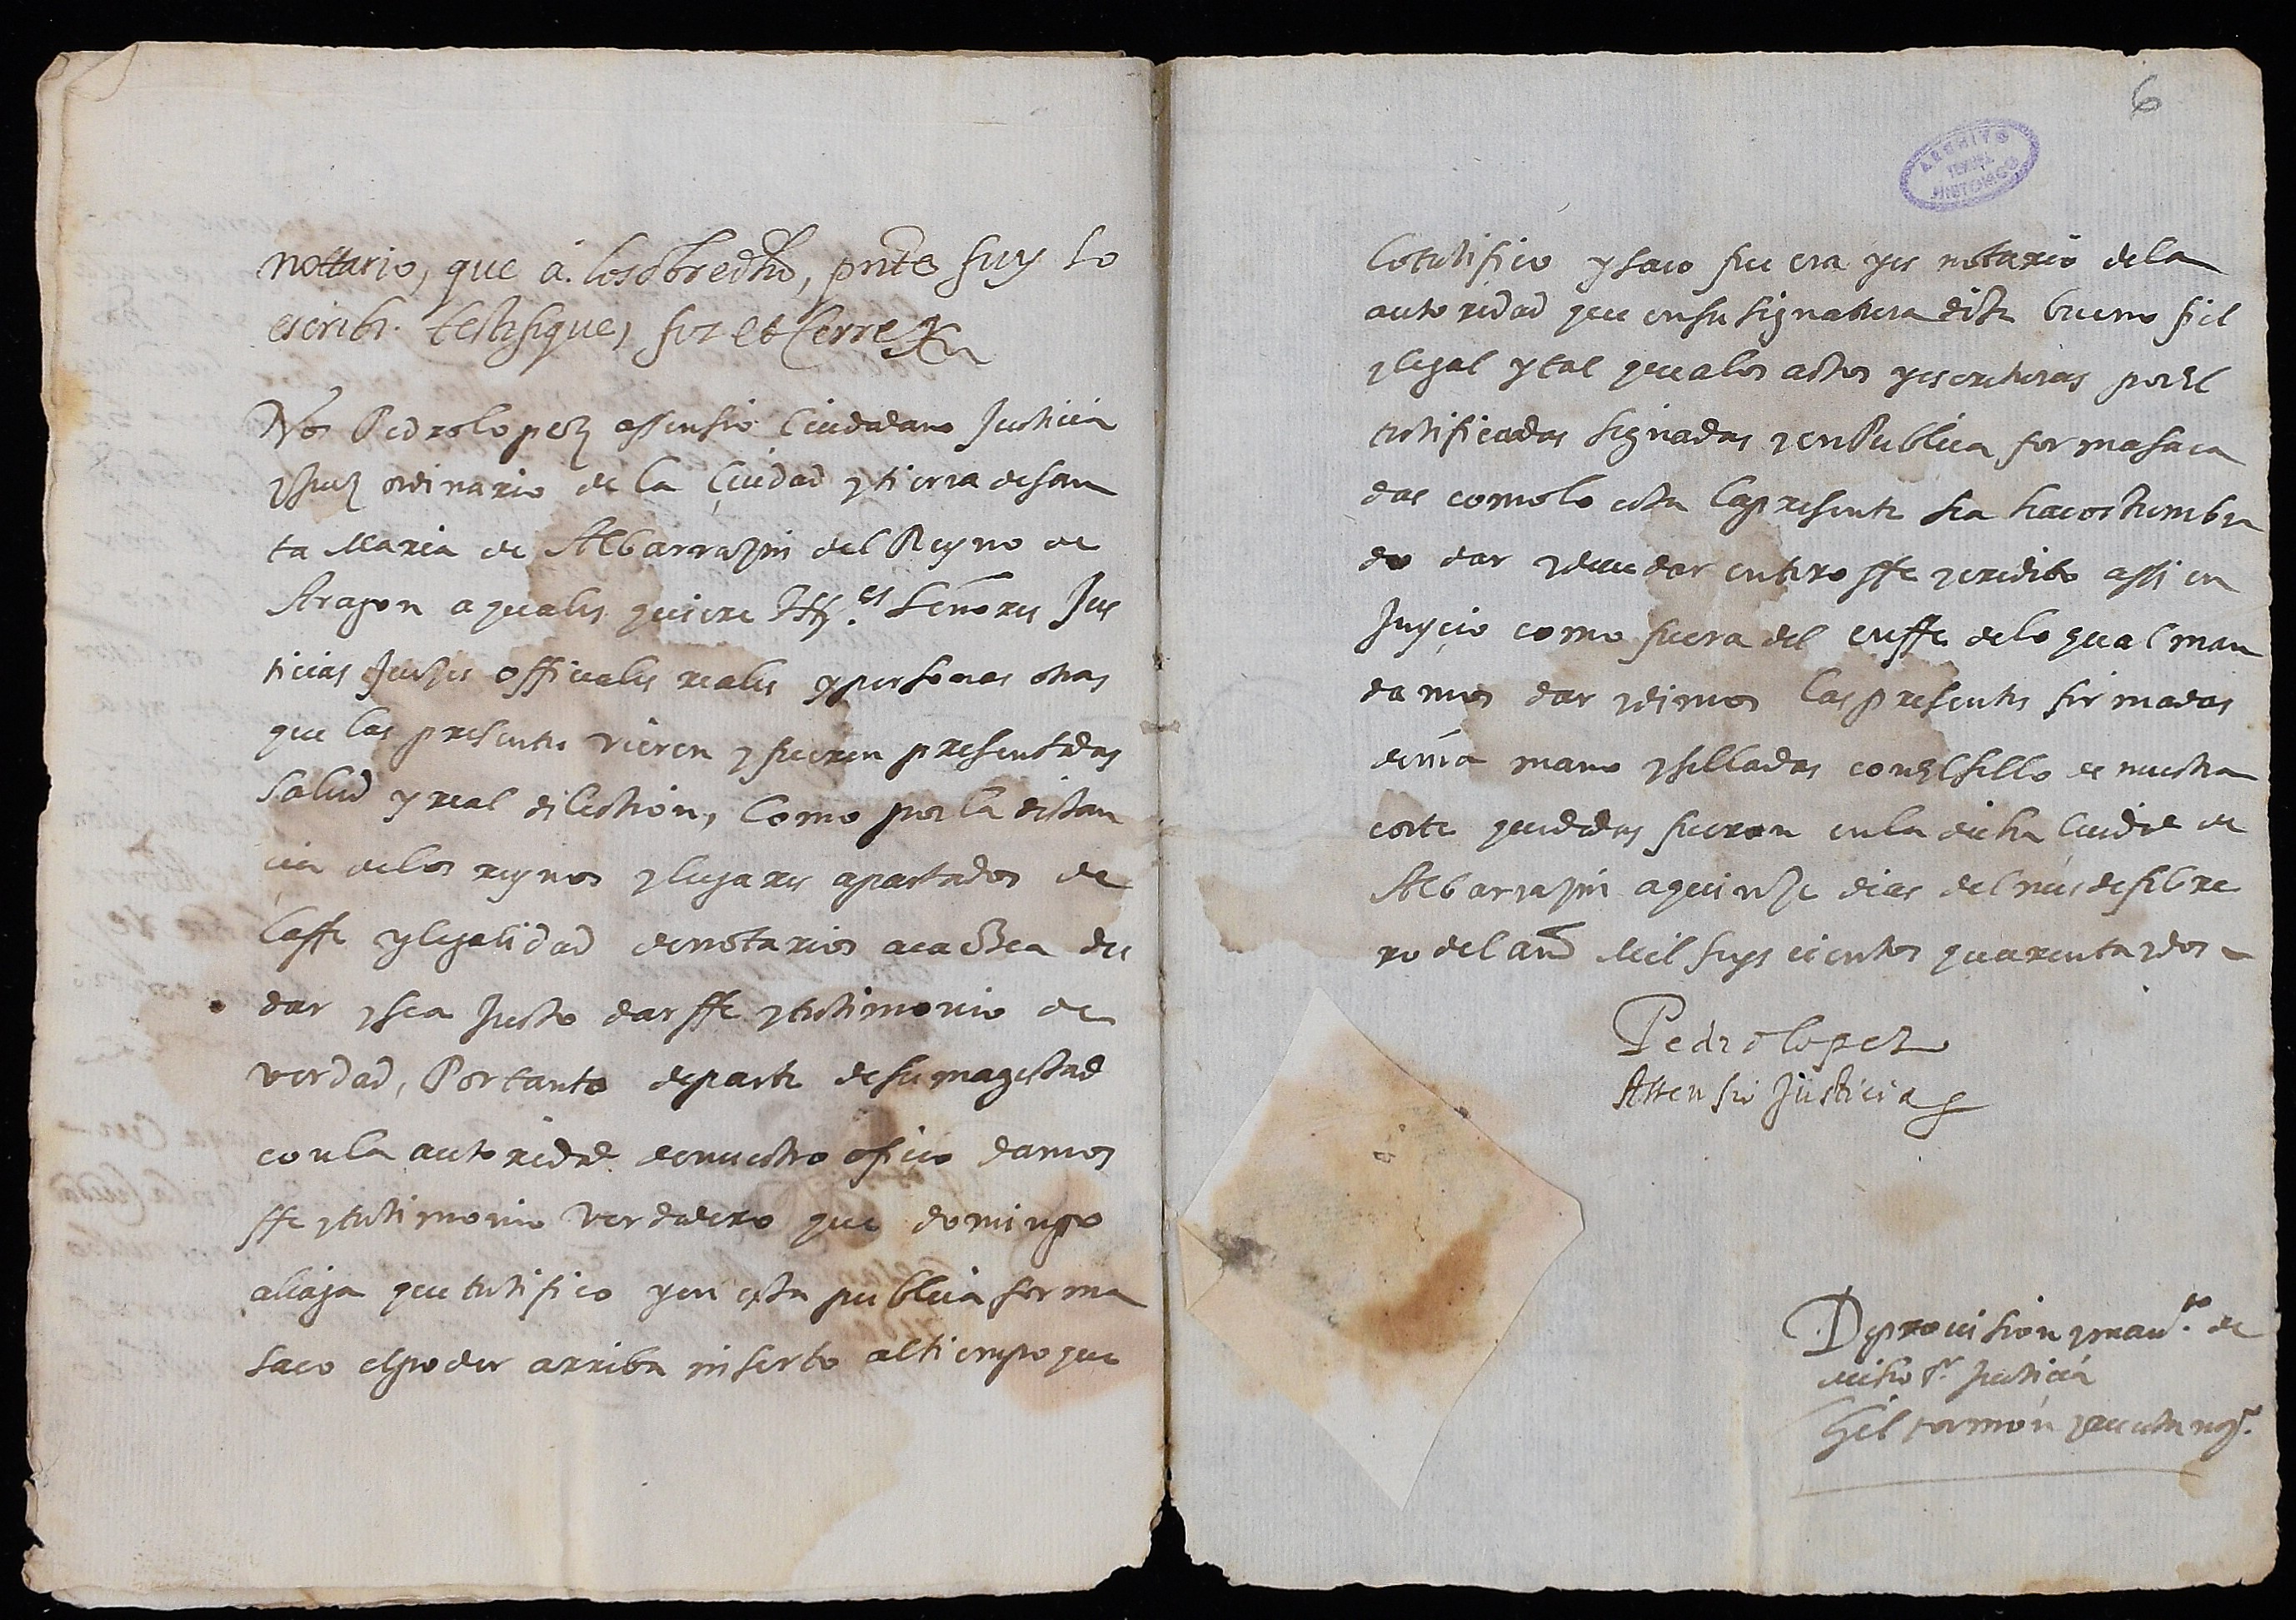 nottario, que á. lo sobredho, pnte fuy lo
escribi. testifique, fiz et Cerre
Nos Pedro lopez assensio Ciudadano Justicia
y Juez ordinario de la Ciudad y tierra de san
ta Maria de Albarrazin del Reyno de
Aragon a quales quiere Illes. Señores Jus
ticias Juezes officiales reales y personas otras
que las presentes vieren y fueren presentadas
salud y real dilection, Como por la distan
cia de los reynos y lugares apartados de
la ffe y legalidad de notarios acaezca du
dar y sea Justo dar ffe y testimonio de
verdad, Por tanto de parte de su magestad
con la autoridad de nuestro oficio damos
ffe y testimonio verdadero que domingo
aliaga que testifico y en esta publica forma
saco el poder arriba inserto al tiempo que
6
ARCHIVO
HISTORICO
TERUEL
lo testifico y saco fue era y es notario de la
autoridad que en su signatura dize bueno fiel
y legal y tal que a los actos y escrituras por El
testificadas signadas y en Publica forma saca
das como lo esta la presente sea hacostumbra
do dar y deue dar entero ffe y credito assi en
Juyçio como fuera del en ffe de lo qual man
damos dar y dimos las presentes firmadas
de mía mano y selladas con El sello de nuestra
corte que dadas fueron en la dicha Ciudad de
Albarrazin a quinze dias del mes de febre
ro del año Mil seys cientos quarenta y dos
Pedro lopez
Assensio Justicia
De prouision y man.to de
dicho sr. Justicia
Gil tormón y cuesta noto.